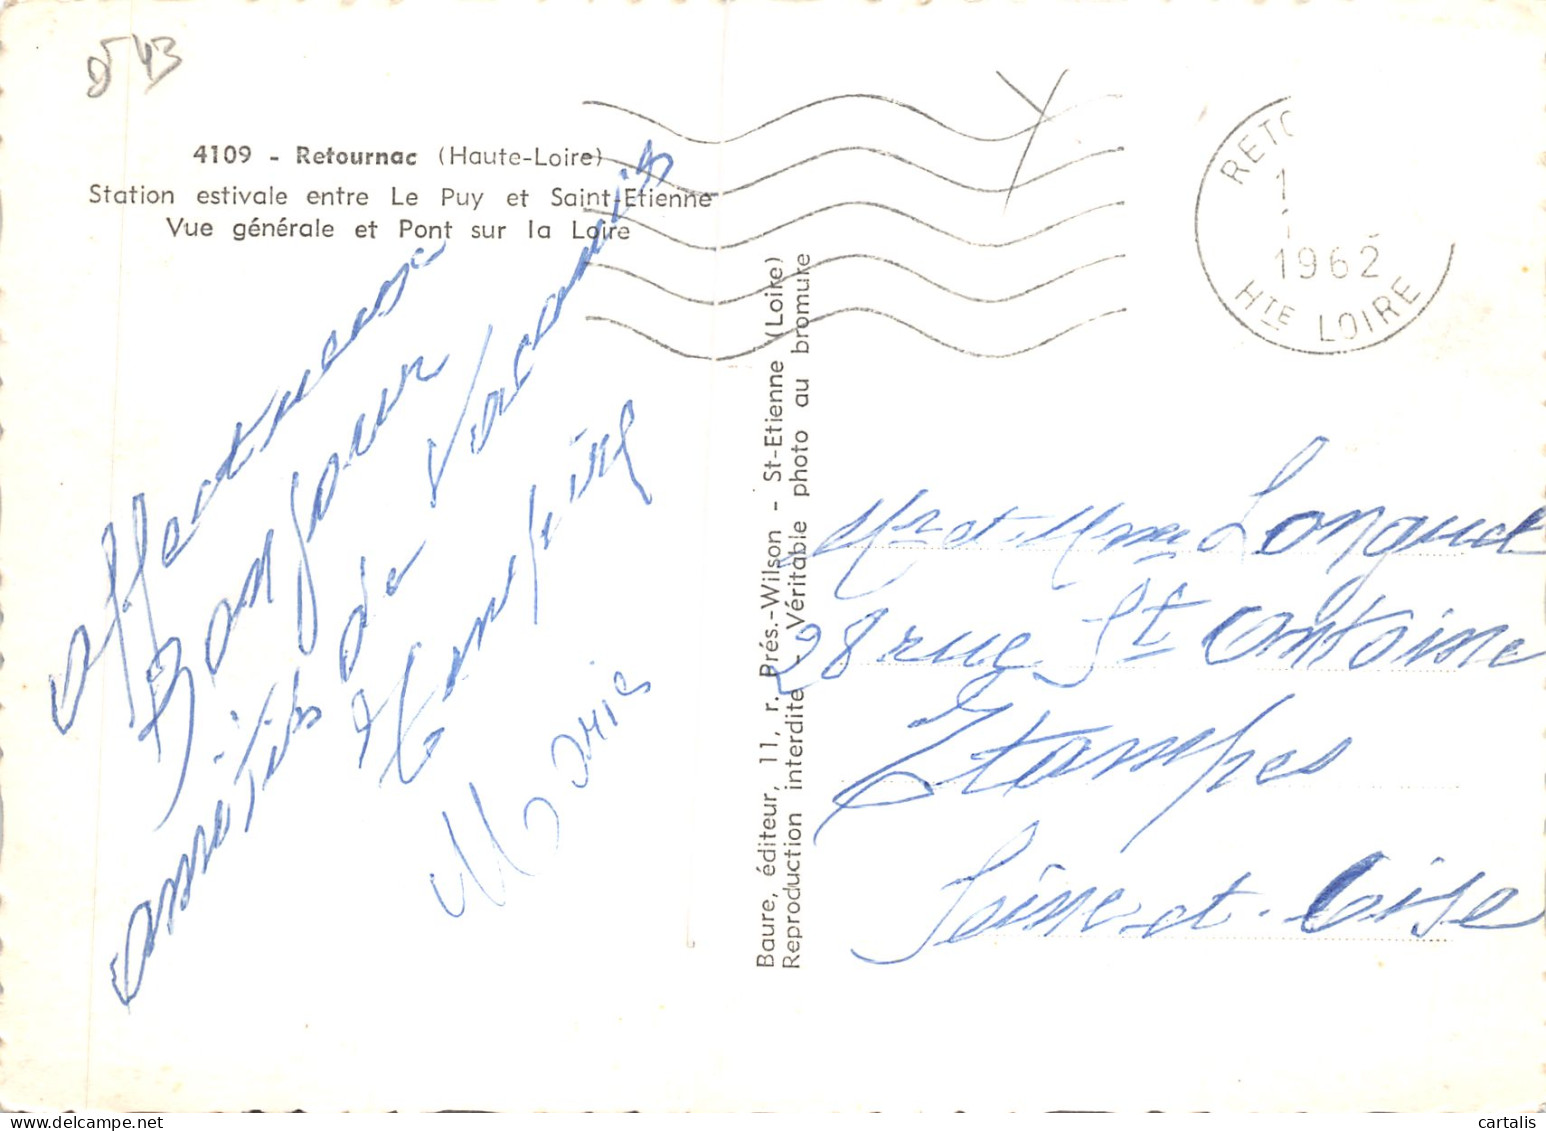 43
4109 - Retournac (Haute-Loire)
Station estivale entre Le Puy et Saint-Etienne
Vue générale et Pont sur la Loire
RETO
1
1962
HTE LOIRE
affectueux
Bonjour
amitiés de Vacances
Marie
Baure, éditeur, 11, r. Prés.-Wilson - St-Etienne (Loire)
Reproduction interdite - Véritable photo au bromure
Mr et Mme Longuet
28 rue St Antoine
Etampes
Seine et Oise
cartalis